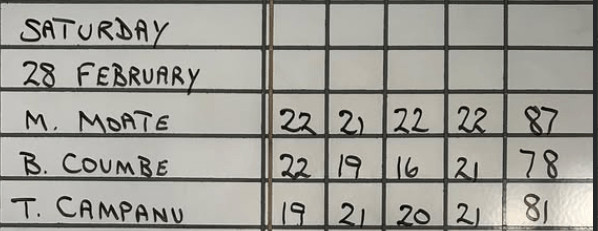 SATURDAY
28 FEBRUARY
M. MOATE 22 21 22 22 87
B. COUMBE 22 19 16 21 78
T. CAMPANU 19 21 20 21 81